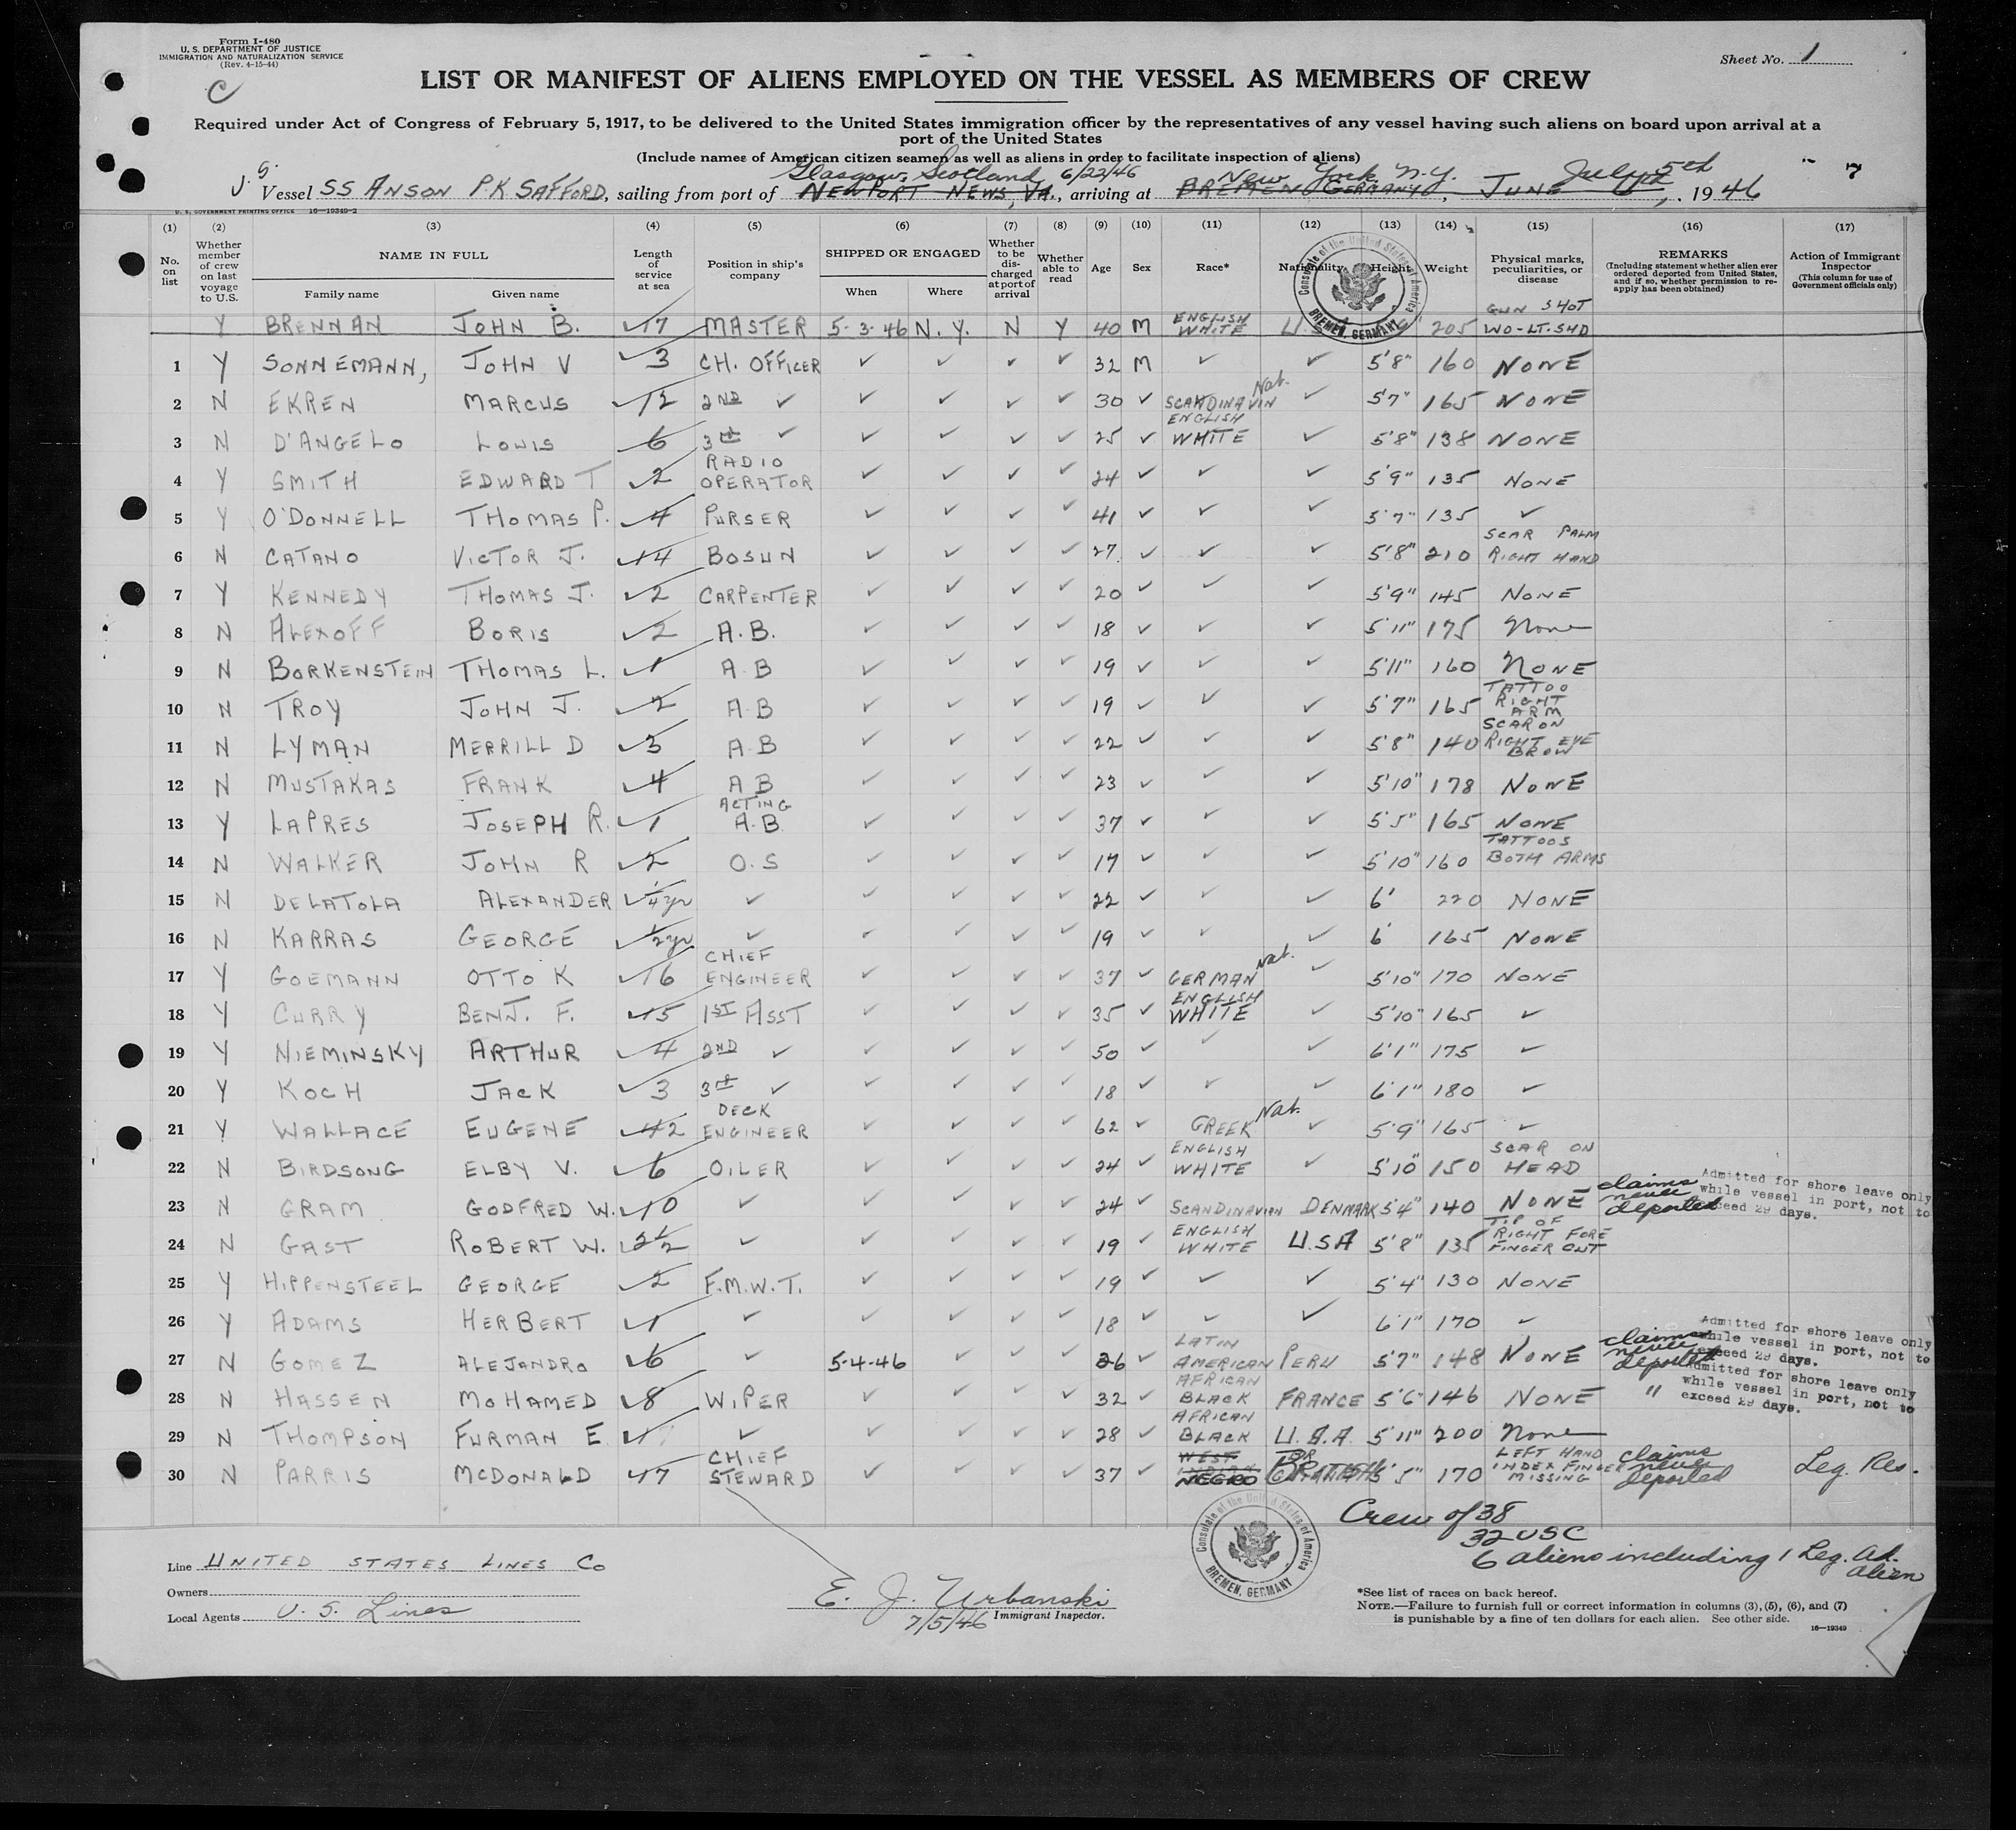 Form I-480
U. S. DEPARTMENT OF JUSTICE
IMMIGRATION AND NATURALIZATION SERVICE
(Rev. 4-15-44)
C
Sheet No. 1
LIST OR MANIFEST OF ALIENS EMPLOYED ON THE VESSEL AS MEMBERS OF CREW
Required under Act of Congress of February 5, 1917, to be delivered to the United States immigration officer by the representatives of any vessel having such aliens on board upon arrival at a
port of the United States
(Include names of American citizen seamen as well as aliens in order to facilitate inspection of aliens)
Glasgow, Scotland 6/22/46 New York N.Y. July 5th
Vessel SS ANSON P.K SAFFORD, sailing from port of NEWPORT NEWS, VA., arriving at BREMEN GERMANY, JUNE, 1946
7
U. S. GOVERNMENT PRINTING OFFICE 16—19349-2
(1) (2) (3) (4) (5) (6) (7) (8) (9) (10) (11) (12) (13) (14) (15) (16) (17)
No. on list
Whether member of crew on last voyage to U.S.
NAME IN FULL
Family name Given name
Length of service at sea
Position in ship's company
SHIPPED OR ENGAGED
When Where
Whether to be discharged at port of arrival
Whether able to read
Age
Sex
Race*
Nationality
Height
Weight
Physical marks, peculiarities, or disease
REMARKS
(Including statement whether alien ever ordered deported from United States, and if so, whether permission to reapply has been obtained)
Action of Immigrant Inspector
(This column for use of Government officials only)
Consulate of the United States of America
BREMEN, GERMANY
Y BRENNAN JOHN B. 17 MASTER 5-3-46 N.Y. N Y 40 M ENGLISH WHITE 205 GUN SHOT WO-LT.SHD
1 Y SONNEMANN, JOHN V 3 CH. OFFICER ✓ ✓ ✓ ✓ 32 M ✓ ✓ 5'8" 160 NONE
2 N EKREN MARCUS 12 2ND ✓ ✓ ✓ ✓ ✓ 30 ✓ SCANDINAVIN Nat. ✓ 5'7" 165 NONE
3 N D'ANGELO LOUIS 6 3 ✓ ✓ ✓ ✓ ✓ 25 ✓ ENGLISH WHITE ✓ 5'8" 138 NONE
4 Y SMITH EDWARD T 2 RADIO OPERATOR ✓ ✓ ✓ ✓ 24 ✓ ✓ ✓ 5'9" 135 NONE
5 Y O'DONNELL THOMAS P. 4 PURSER ✓ ✓ ✓ ✓ 41 ✓ ✓ ✓ 5'7" 135 ✓
6 N CATANO VICTOR J. 14 BOSUN ✓ ✓ ✓ ✓ 27 ✓ ✓ ✓ 5'8" 210 SCAR PALM RIGHT HAND
7 Y KENNEDY THOMAS J. 2 CARPENTER ✓ ✓ ✓ ✓ 20 ✓ ✓ ✓ 5'9" 145 NONE
8 N ALEXOFF BORIS 2 A.B. ✓ ✓ ✓ ✓ 18 ✓ ✓ ✓ 5'11" 175 None
9 N BORKENSTEIN THOMAS L. 1 A.B ✓ ✓ ✓ ✓ 19 ✓ ✓ ✓ 5'11" 160 NONE
10 N TROY JOHN J. 2 A.B ✓ ✓ ✓ ✓ 19 ✓ ✓ ✓ 5'7" 165 TATTOO RIGHT ARM
11 N LYMAN MERRILL D 3 A.B ✓ ✓ ✓ ✓ 22 ✓ ✓ ✓ 5'8" 140 SCAR ON RIGHT EYE BROW
12 N MUSTAKAS FRANK 4 A B ✓ ✓ ✓ ✓ 23 ✓ ✓ ✓ 5'10" 178 NONE
13 Y LAPRES JOSEPH R. 1 ACTING A.B. ✓ ✓ ✓ ✓ 37 ✓ ✓ ✓ 5'5" 165 NONE
14 N WALKER JOHN R 2 O.S ✓ ✓ ✓ ✓ 17 ✓ ✓ ✓ 5'10" 160 TATTOOS BOTH ARMS
15 N DELATOLA ALEXANDER 1/4 yr ✓ ✓ ✓ ✓ ✓ 22 ✓ ✓ ✓ 6' 220 NONE
16 N KARRAS GEORGE 1/2 yr ✓ ✓ ✓ ✓ ✓ 19 ✓ ✓ ✓ 6' 165 NONE
17 Y GOEMANN OTTO K 16 CHIEF ENGINEER ✓ ✓ ✓ ✓ 37 ✓ GERMAN Nat. ✓ 5'10" 170 NONE
18 Y CURRY BENJ. F. 15 1ST ASST ✓ ✓ ✓ ✓ 35 ✓ ENGLISH WHITE ✓ 5'10" 165 ✓
19 Y NIEMINSKY ARTHUR 4 2ND ✓ ✓ ✓ ✓ ✓ 50 ✓ ✓ ✓ 6'1" 175 ✓
20 Y KOCH JACK 3 3 ✓ ✓ ✓ ✓ ✓ 18 ✓ ✓ ✓ 6'1" 180 ✓
21 Y WALLACE EUGENE 42 DECK ENGINEER ✓ ✓ ✓ ✓ 62 ✓ GREEK Nat. ✓ 5'9" 165 ✓
22 N BIRDSONG ELBY V. 6 OILER ✓ ✓ ✓ ✓ 24 ✓ ENGLISH WHITE ✓ 5'10" 150 SCAR ON HEAD
23 N GRAM GODFRED W. 10 ✓ ✓ ✓ ✓ ✓ 24 ✓ SCANDINAVIAN DENMARK 5'4" 140 NONE claims never deported Admitted for shore leave only while vessel in port, not to exceed 29 days.
24 N GAST ROBERT W. 2 1/2 ✓ ✓ ✓ ✓ ✓ 19 ✓ ENGLISH WHITE U.S.A 5'8" 135 TIP OF RIGHT FORE FINGER OUT
25 Y HIPPENSTEEL GEORGE 2 F.M.W.T. ✓ ✓ ✓ ✓ 19 ✓ ✓ ✓ 5'4" 130 NONE
26 Y ADAMS HERBERT 1 ✓ ✓ ✓ ✓ ✓ 18 ✓ ✓ ✓ 6'1" 170 ✓
27 N GOMEZ ALEJANDRO 6 ✓ 5-4-46 ✓ ✓ ✓ 36 ✓ LATIN AMERICAN PERU 5'7" 148 NONE claims never deported Admitted for shore leave only while vessel in port, not to exceed 29 days.
28 N HASSEN MOHAMED 8 WIPER ✓ ✓ ✓ ✓ 32 ✓ AFRICAN BLACK FRANCE 5'6" 146 NONE " Admitted for shore leave only while vessel in port, not to exceed 29 days.
29 N THOMPSON FURMAN E 1 ✓ ✓ ✓ ✓ ✓ 28 ✓ AFRICAN BLACK U.S.A. 5'11" 200 None
30 N PARRIS MCDONALD 17 CHIEF STEWARD ✓ ✓ ✓ ✓ 37 ✓ WEST INDIAN NEGRO BRITISH 5'5" 170 LEFT HAND INDEX FINGER MISSING claims never deported Leg. Res.
Consulate of the United States of America
BREMEN, GERMANY
Crew of 38
32 USC
6 aliens including 1 Leg. Ad. alien
Line UNITED STATES LINES CO
Owners
Local Agents U. S. Lines
E. J. Urbanski
7/5/46 Immigrant Inspector.
*See list of races on back hereof.
NOTE.—Failure to furnish full or correct information in columns (3), (5), (6), and (7)
is punishable by a fine of ten dollars for each alien. See other side.
16—19349